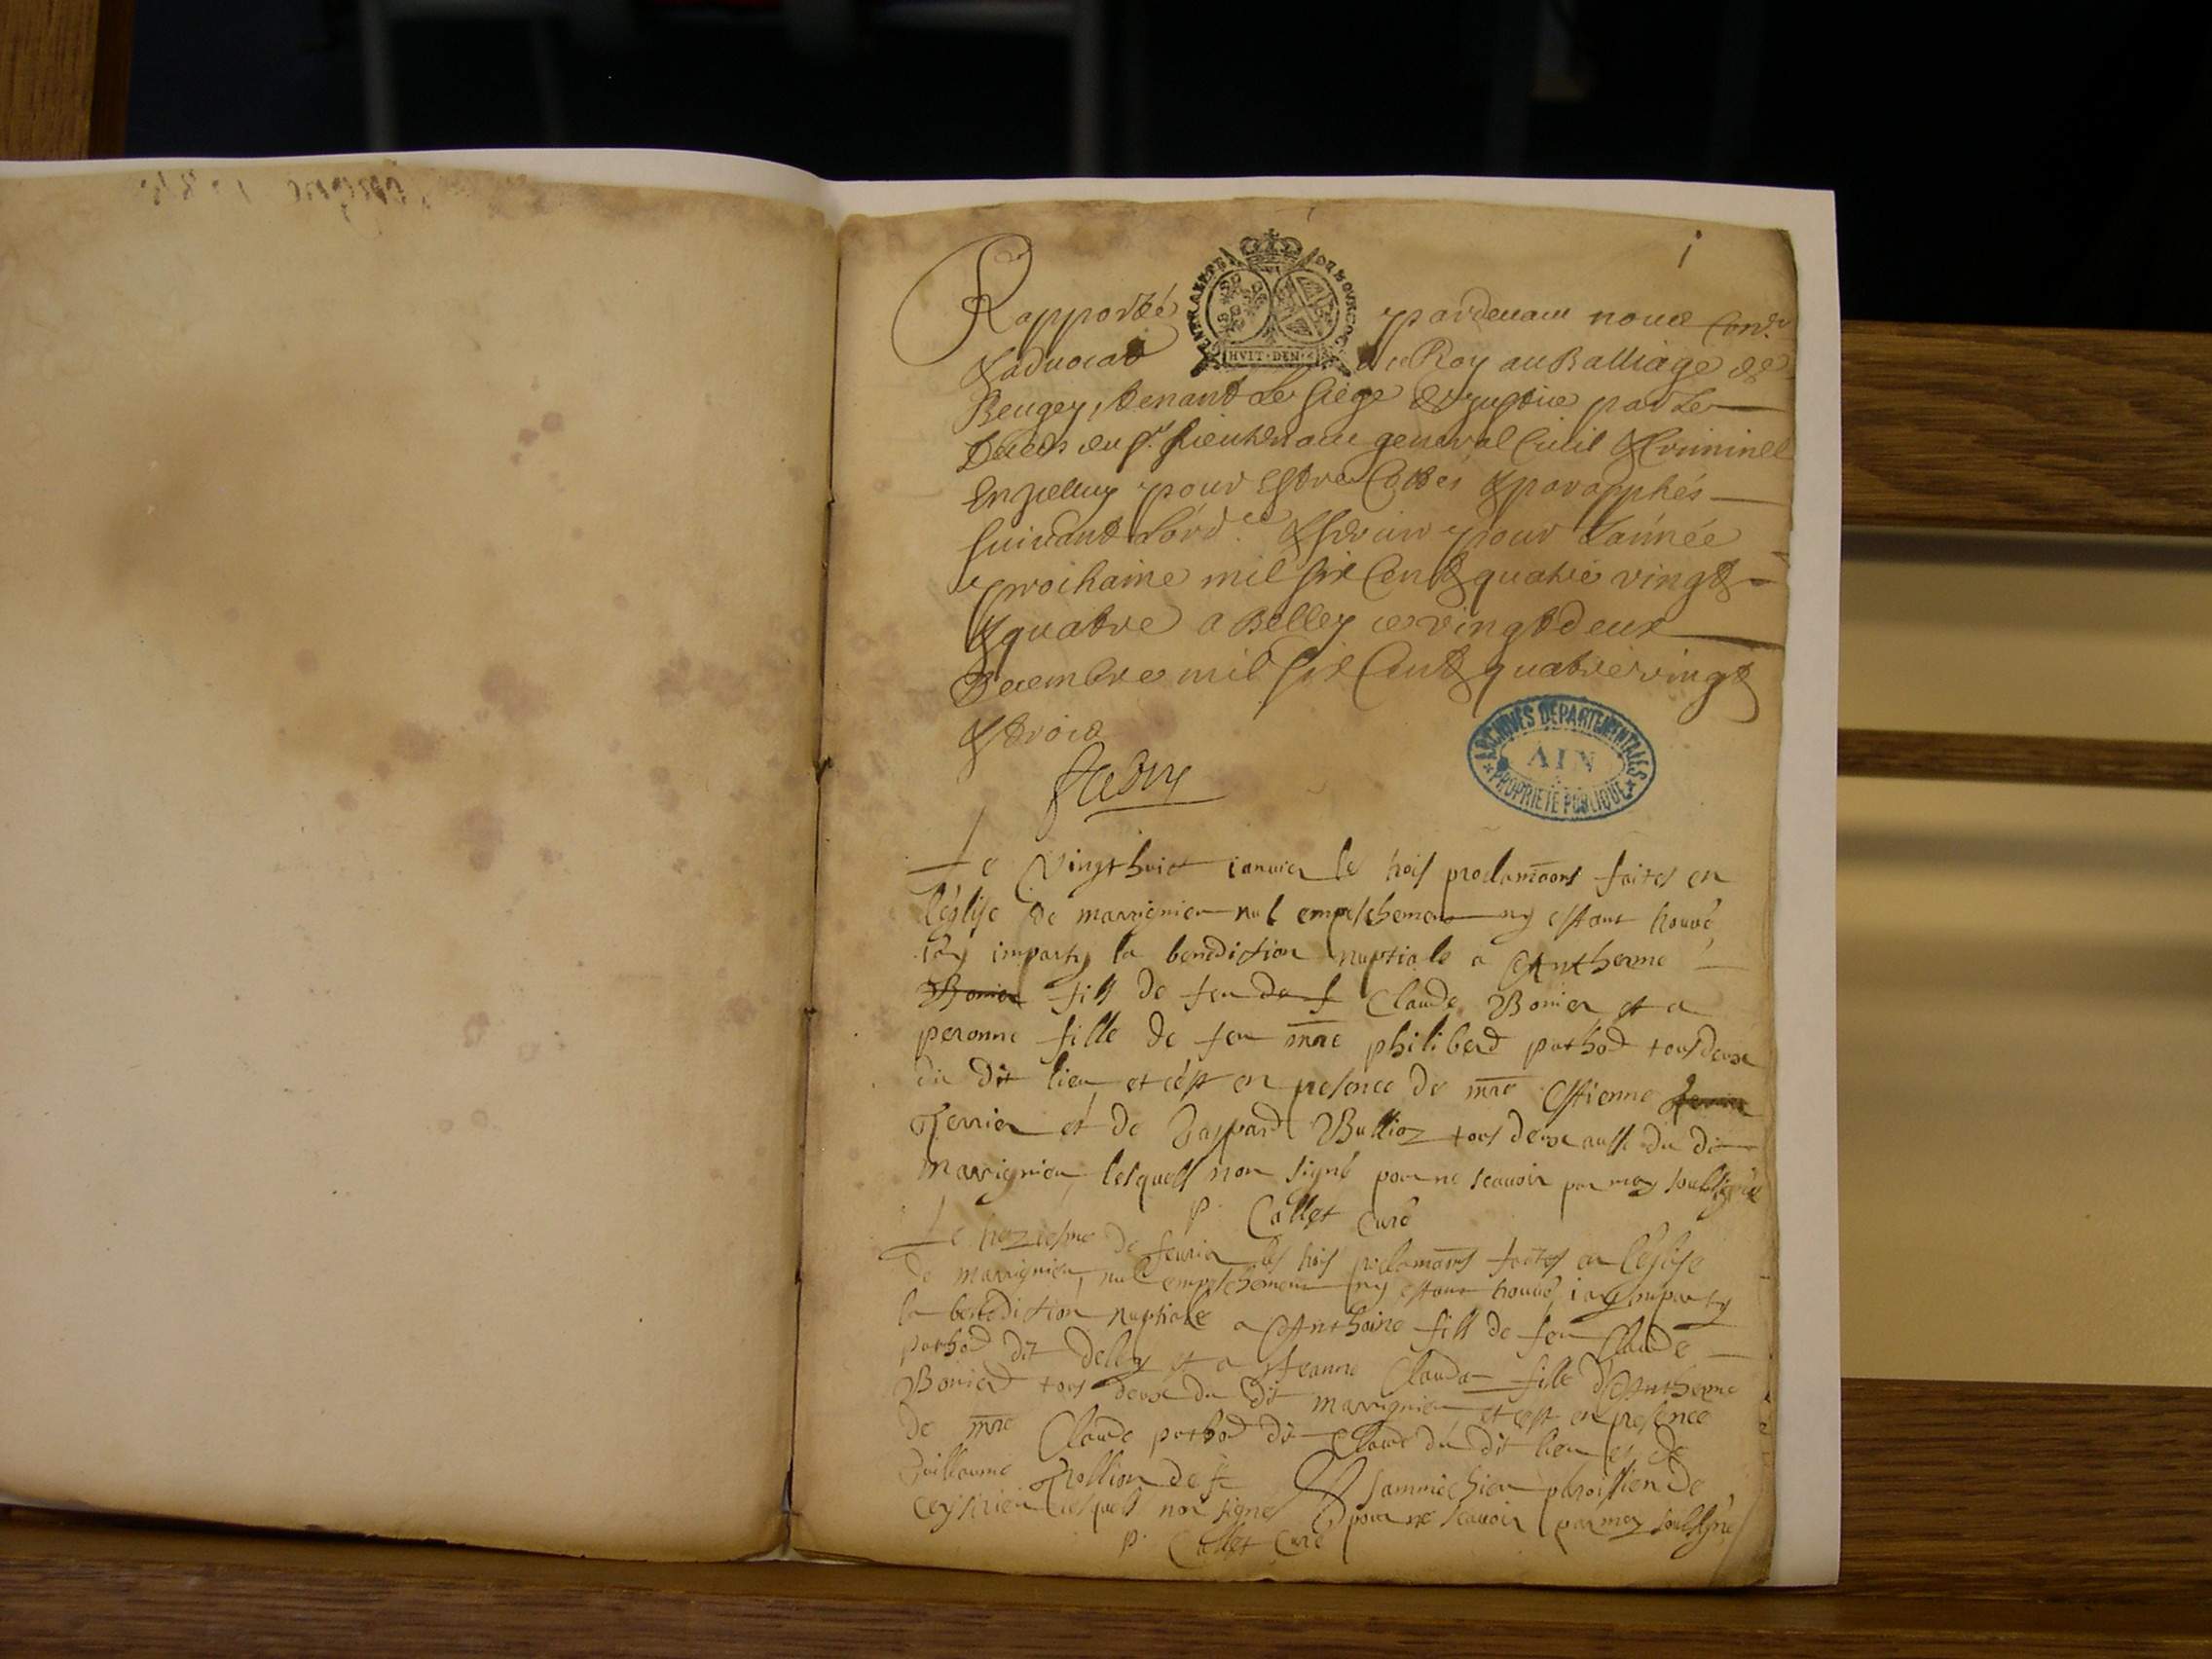 1
GENERALITE DE BOURGOG
HVIT·DEN·
Rapporté pardevant nous Conr
& advocat du Roy au Balliage de
Beugey, tenant le siege de justice par le
Deceds du sr. Lieutenant general Civil & Criminel
En Icelluy pour Estre Cottés & parapphés
suivant l'ord.ce & servir pour L'année
prochaine mil six Cent quatre vingt
& quatre a Belley ce vingt deux
Decembre mil six Cent quatre vingt
& trois
ARCHIVES DÉPARTEMENTALES
AIN
PROPRIÉTÉ PUBLIQUE
Le vingt huict ianvier les trois proclamaons faites en
l'église de marrignieu nul empeschement ny estant trouvé
iay imparty la benediction nuptiale a Antherme
Bonier fils de feu de f Claude Bonier et a
peronne fille de feu mre philiberd pathod tous deux
du dit lieu, et c'est en presence de mre Estienne
Terrier et de Gaspard Bullioz tous deux aussi du dit
marrignieu, lesquels non signé pour ne scavoir par moy soubsigné
P. Callet Curé
Le trezieme de feurier les trois proclamaons faites en l'église
de marrignieu, nul empeschement ny estant trouvé, iay imparty
la benediction nuptiale a Anthoine fils de feu Claude
pathod dit deley et a Jeanne Clauda fille d'Antherme
Bonierd tous deux du dit marrignieu, et c'est en presence
de mre Claude pathod dit Claude du dit lieu et de
Guillaume de st parroissien de
Ceyzirieu lesquels non signé pour ne scavoir par moy soubsigné
P. Callet Curé